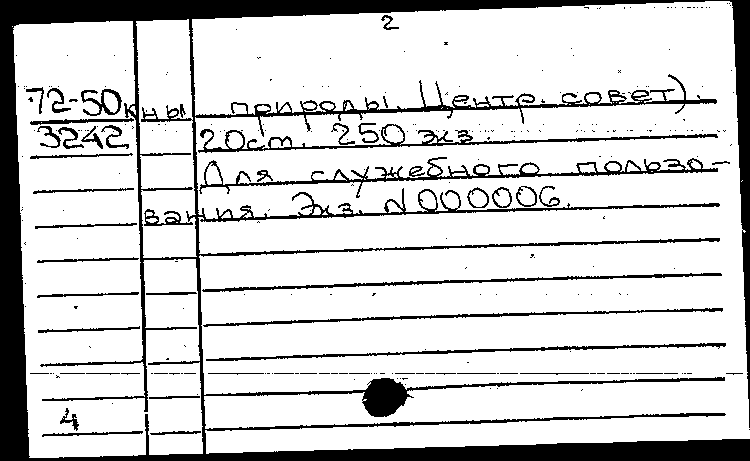 2
72-50к ны природы. Центр. совет).
3242 20 cm. 250 экз.
Для служебного пользо-
вания. Экз. N 000006.
4